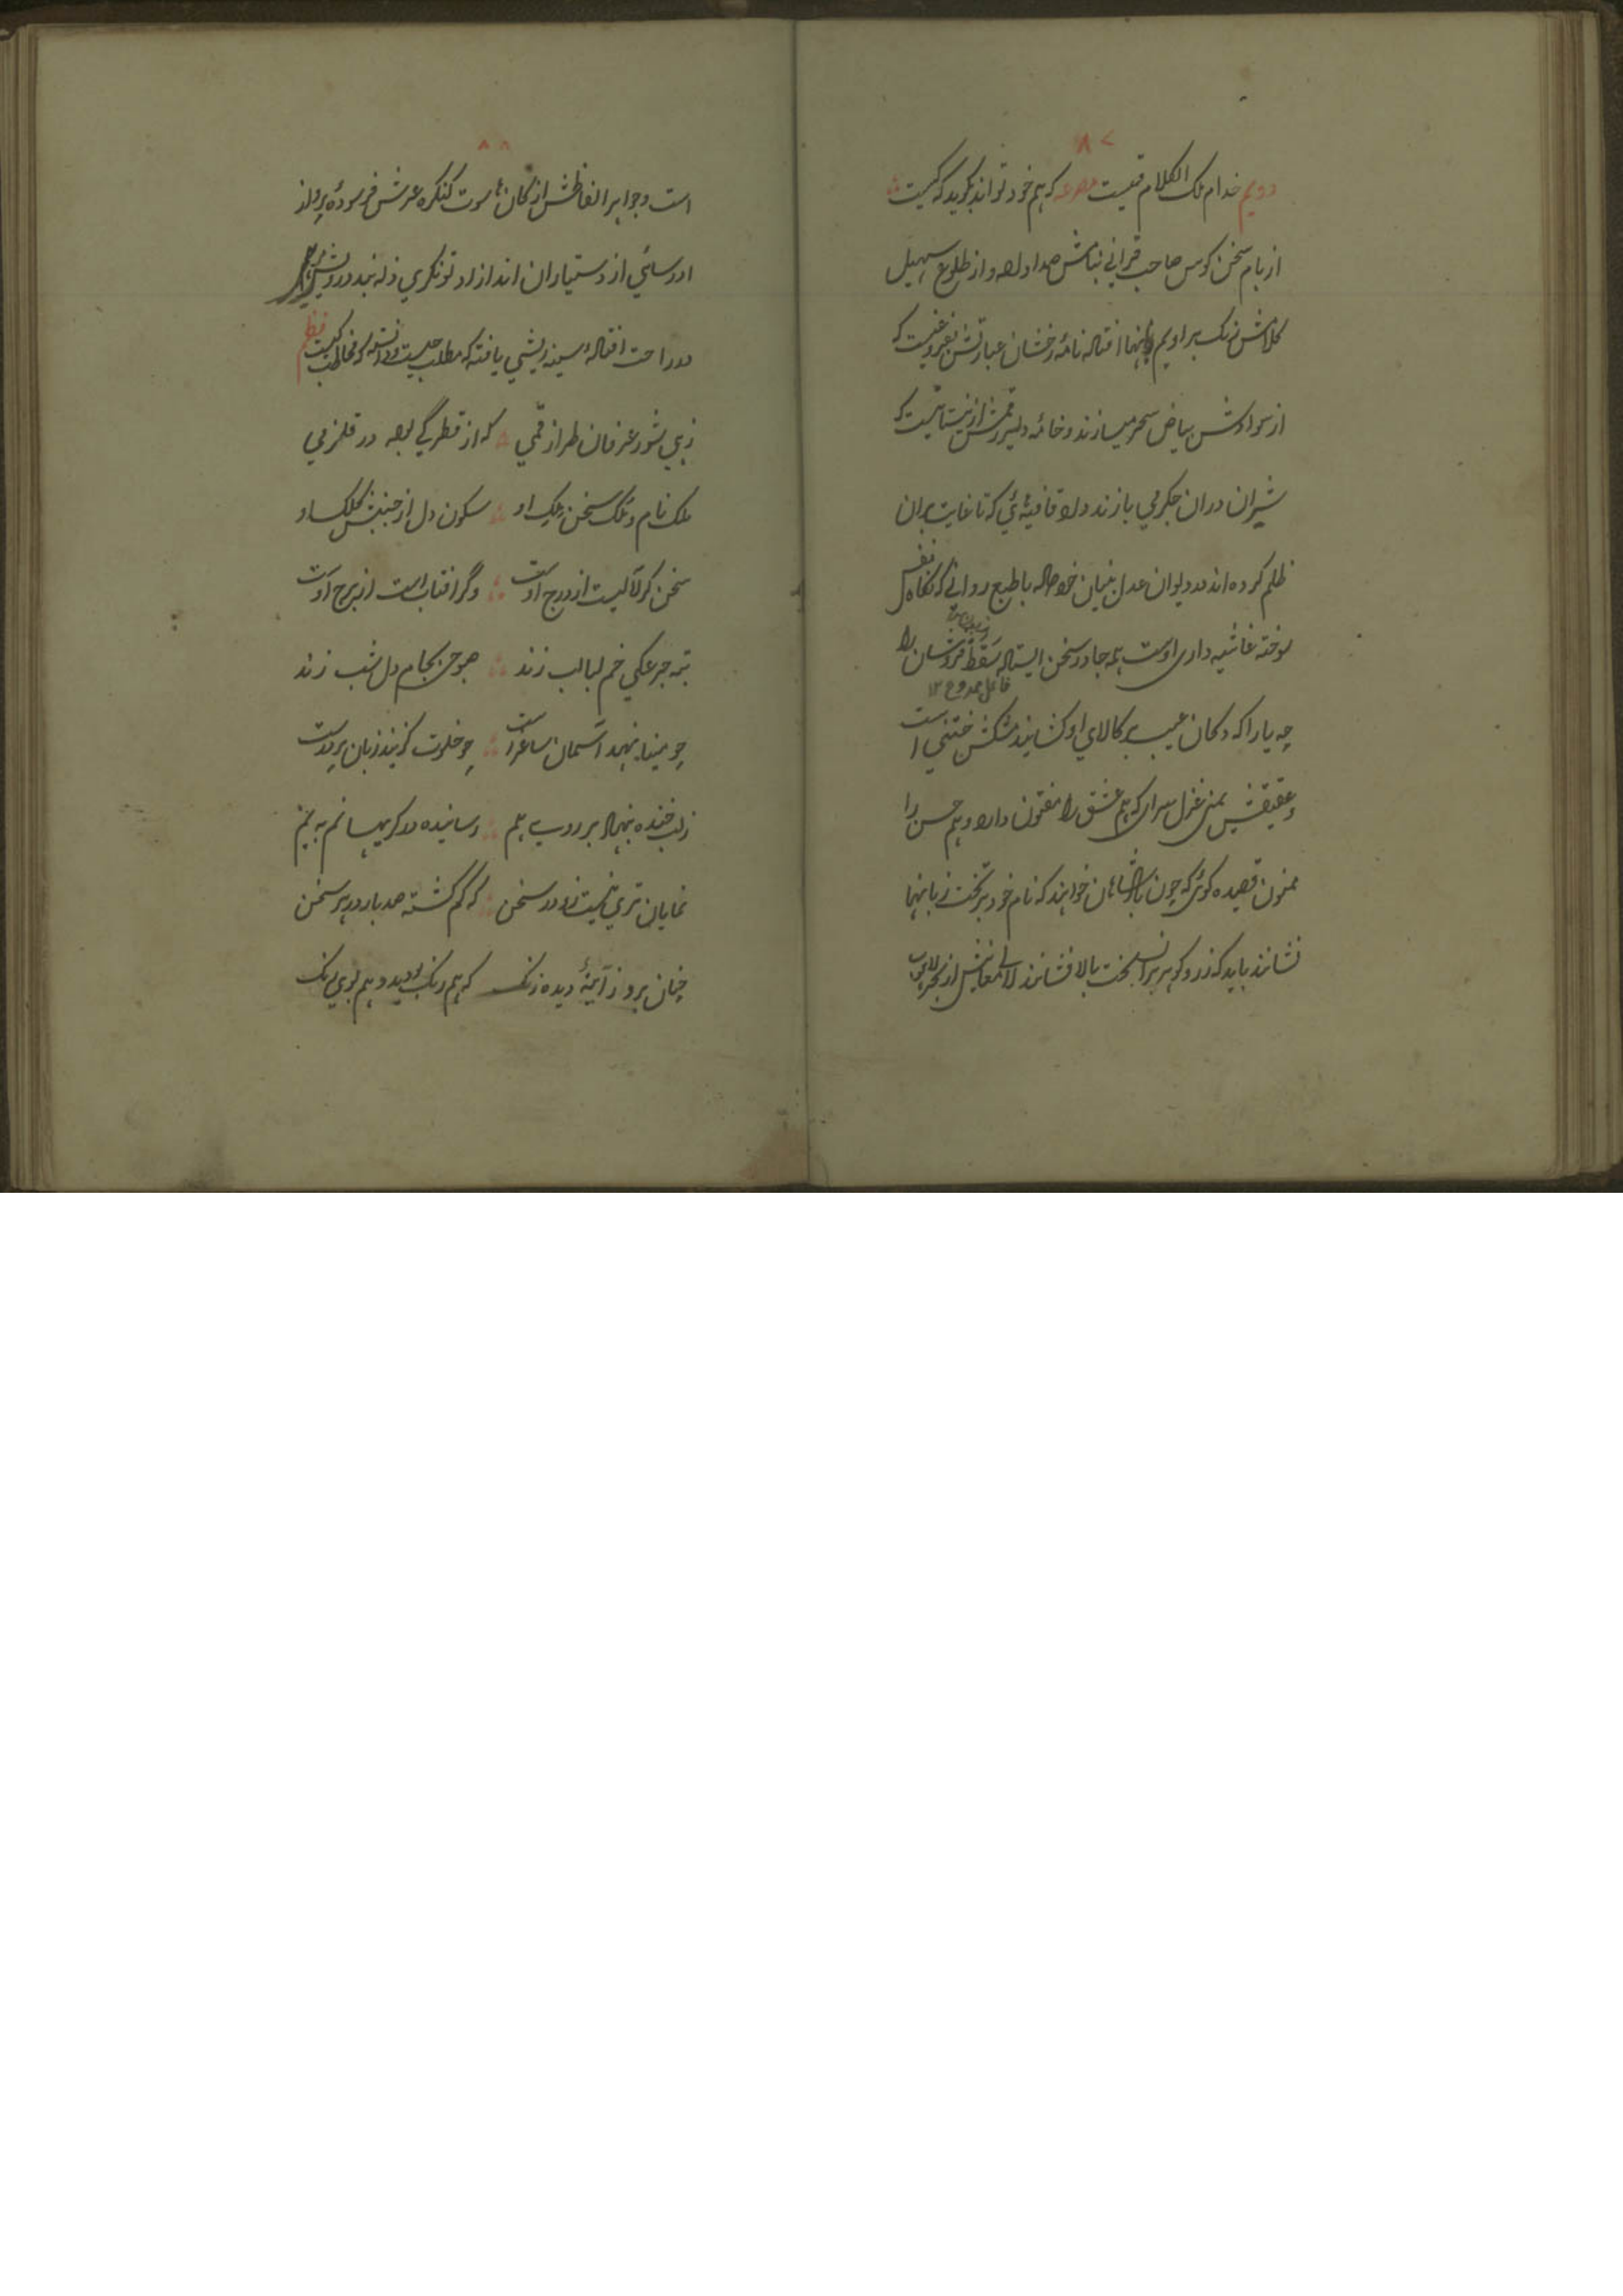 ۸۷
دویم خدام ملک الکلام قمیست مصرعه که هم خود تواند بگوید که کیست
از بام سخن کوس صاحب قرانی بنامش صدا داده و از طلوع سهیل
کلامش رنک بر ادیم زبانها افتاده نامهٔ رخشان عبارتش فروغیست که
از سوادش بیاض سحر میسازند و خامهٔ دلیر رقمش از نیستانیست که
شیران دران جکر می بازند داد قافیهٔ که تا غایت بران
ظلم کرده اند در دیوان عدل بنیان خواهد با طبع روانی که نکاه نفس
سوخته غاشیه داری اوست همه جا در سخن ایستاده سقط فروشان را
قائل ممدوح ۱۲
چه یارا که دکان عیب بر کالای او کشایند مشکش ختنی است
و عقیقش یمنی غزل سرای که هم عشق را مفتون دارد و هم حسن را
ممنون قصیده کوئی که چون پادشاهان خواهند که نام خود بر تخت زبانها
نشانند باید که زر و کوهر بران تخت بالا فشانند لالی معانیش از بحر لاهوت
۸۸
است و جواهر الفاظش از کان ناسوت کنکره عرش فرسودهٔ پرواز
او رسائی از دستیاران انداز او تونکری زله بند درویشی
در راحت افتاده سینه ریشی یافته که مطلب چیست و دانسته که مخاطب کیست نظم
زهی شور عرفان طراز قمی که از قطرگی بوده در قلزمی
ملک نام و ملک سخن ملک او سکون دل از جنبش کلک او
سخن کر لآلیست از درج اوست وگر افتابست از برج اوست
بته جرعکی خم لبالب زند صبوحی بجام دل شب زند
چو مینا نهد آسمان ساغرست چو خلوت کزیند زبان بر درست
ز لب خنده بنهاد بر روی هم رسانیده در کریها نم به یم
نمایان تری نیست زو در سخن که گم گشته صد بار در هر سخن
چنان برد ز آئینهٔ دیده زنک که هم رنک بو دید و هم بوی رنک